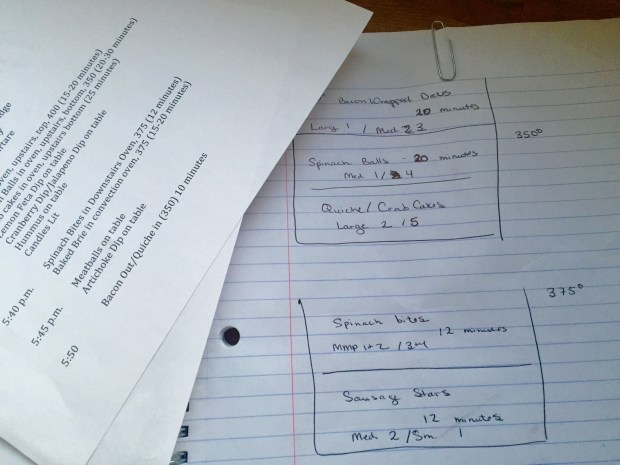 dge
y
rtare
ven, upstairs, top, 400 (15-20 minutes)
Balls in oven, upstairs, bottom, 350 (20-30 minutes)
cakes in oven, upstairs bottom (25 minutes)
Lemon Feta Dip on table
Cranberry Dip/Jalapeno Dip on table
Hummus on table
Candles Lit
5:40 p.m.
Spinach Bites in Downstairs Oven, 375 (12 minutes)
Baked Brie in convection oven, 375 (15-20 minutes)
5:45 p.m.
Meatballs on table
Artichoke Dip on table
5:50
Bacon Out/Quiche in (350) 10 minutes
Bacon Wrapped Dates
20 minutes
Large 1 / Med 3
350°
Spinach Balls - 20 minutes
Med 1/ 4
Quiche/ Crab Cakes
Large 2 / 5
375°
Spinach bites
12 minutes
MMP 1+2 / 3+4
Sausage Stars
12 minutes
Med 2 / Sm 1